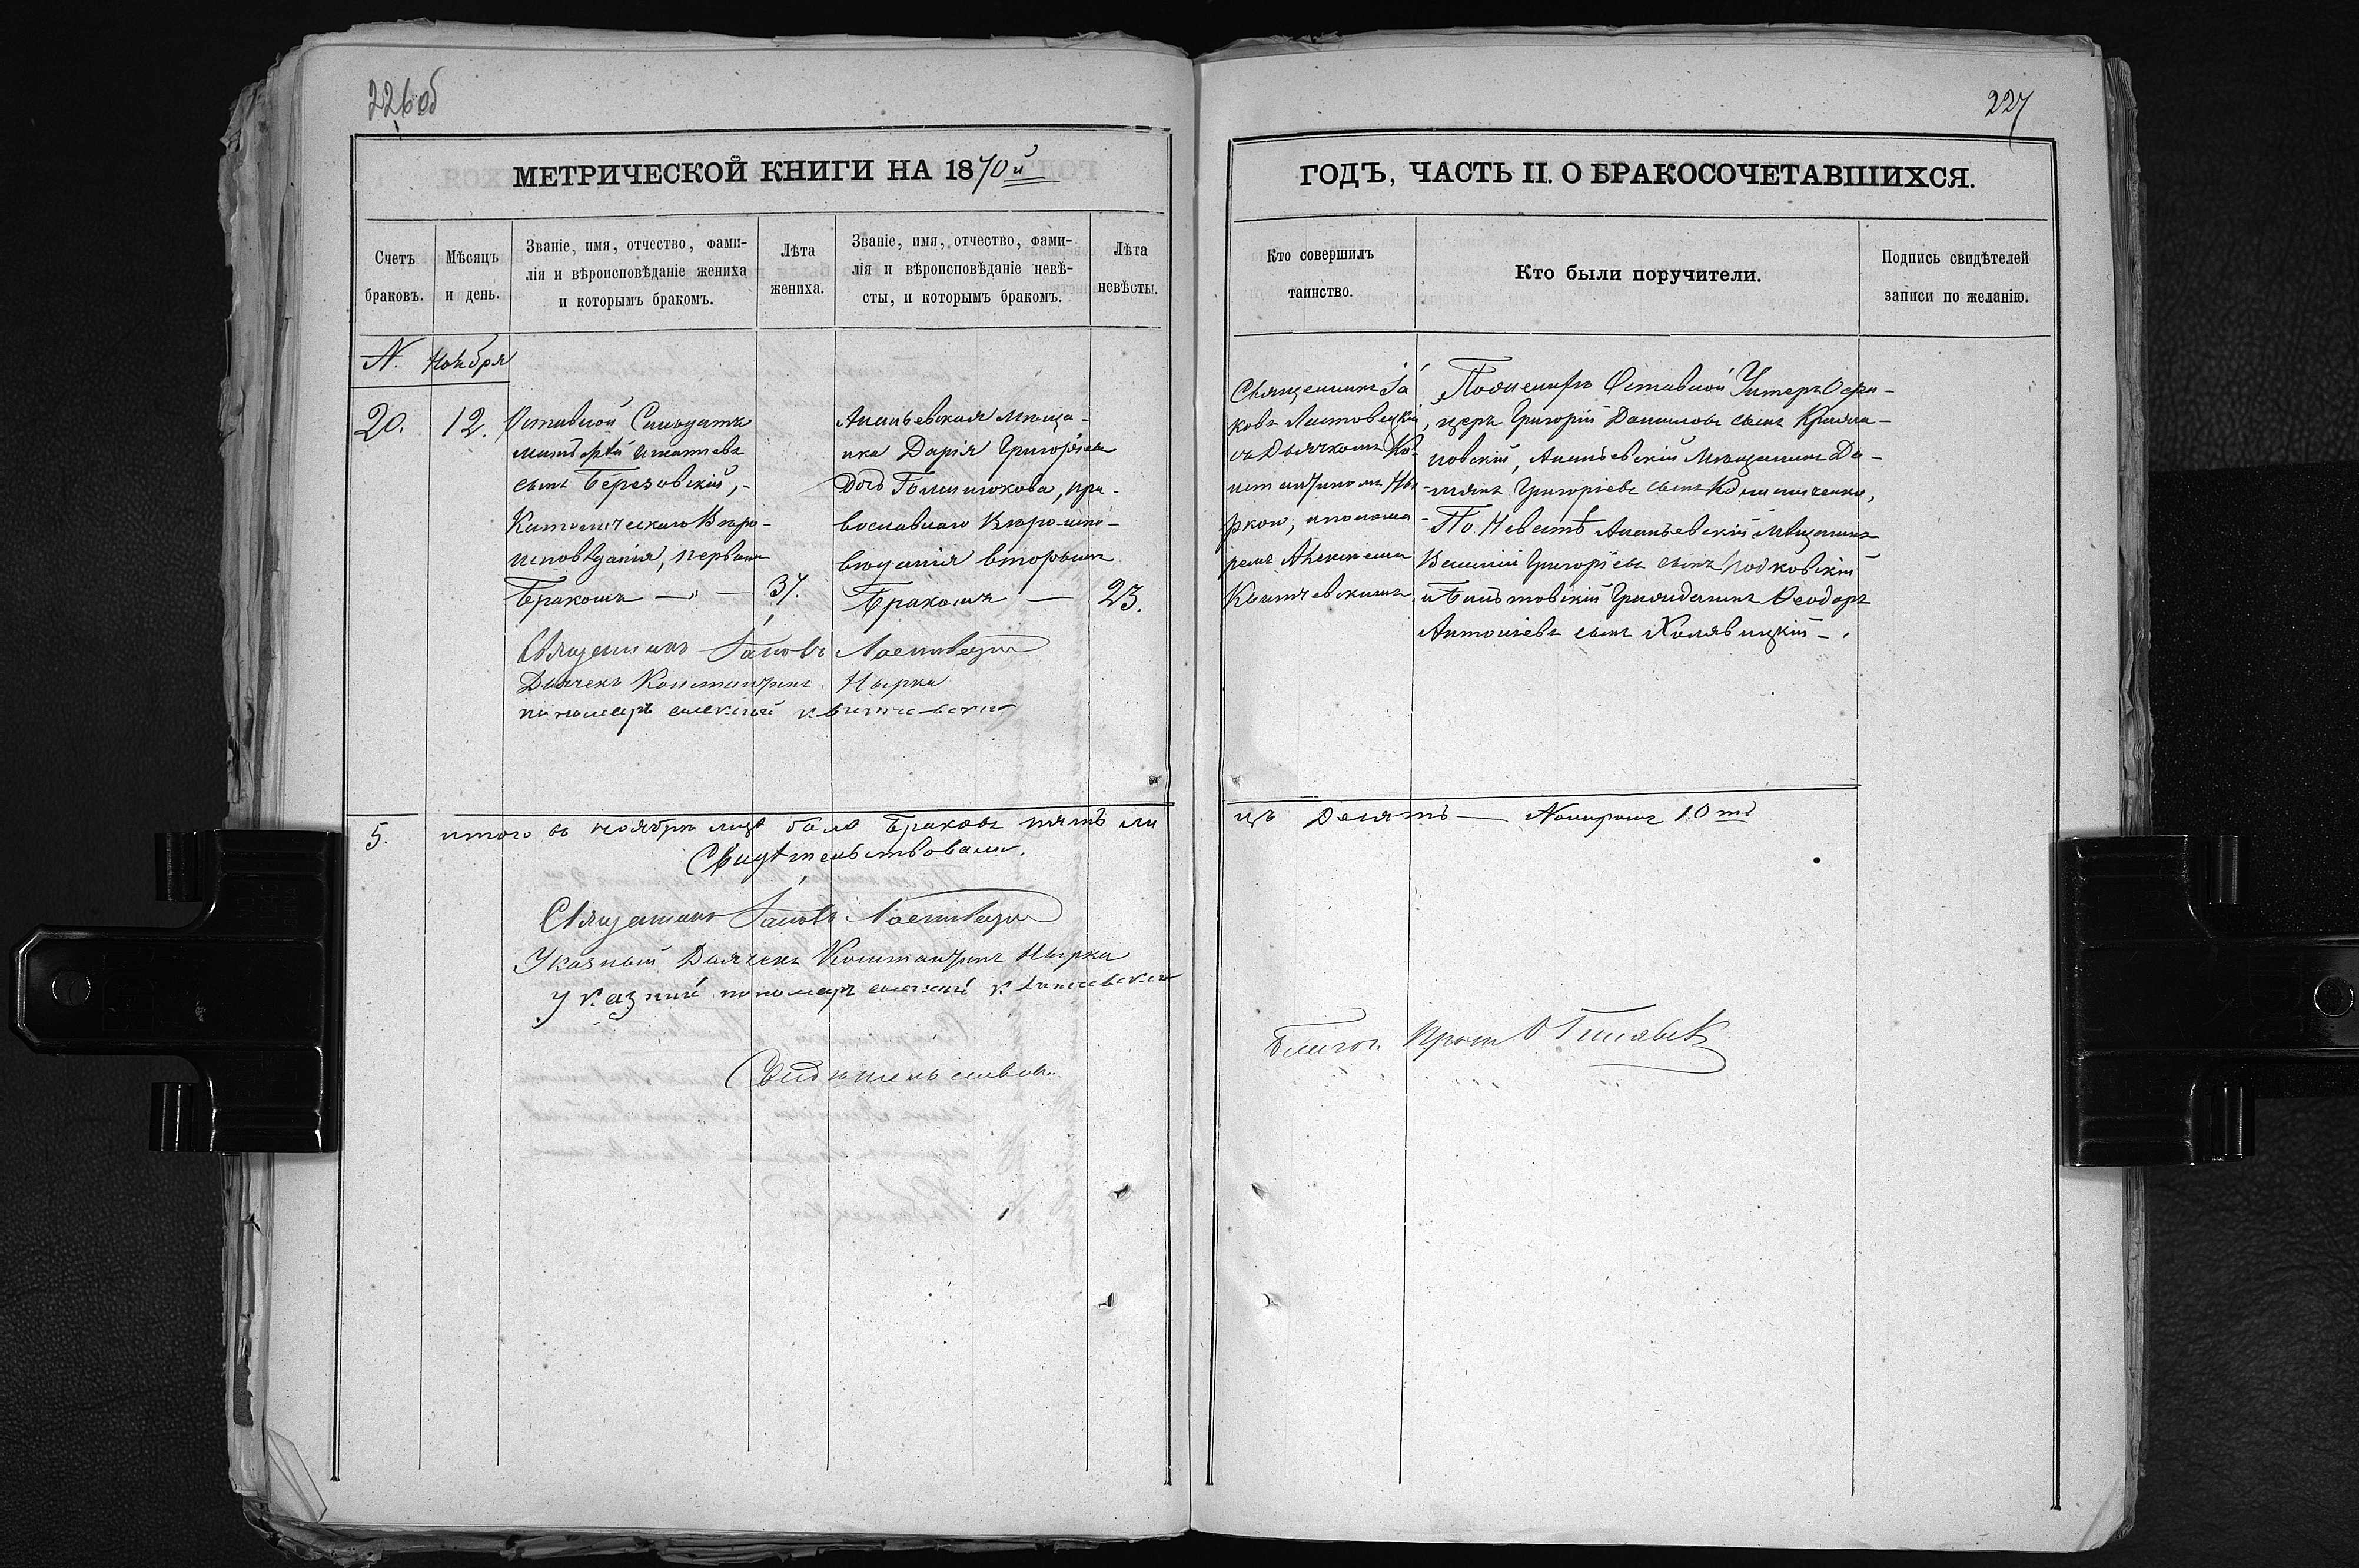 226об
МЕТРИЧЕСКОЙ КНИГИ НА 1870й
Счетъ браковъ.
Мѣсяцъ и день.
Званіе, имя, отчество, фами-
лія и вѣроисповѣданіе жениха
и которымъ бракомъ.
Лѣта
жениха.
Званіе, имя, отчество, фами-
лія и вѣроисповѣданіе невѣ-
сты, и которымъ бракомъ.
Лѣта
невѣсты.
N. Ноября
20. 12.
Отставной Солдатъ
Матѳѣй Игнатіевъ
сынъ Березовскій, -
Католическаго Вѣро-
исповѣданія, первымъ
Бракомъ — „ — 37.
Ананьевская Мѣща-
нка Дарія Григоріева
Дочь, пра-
вославнаго Вѣро-испо-
вѣданія вторымъ
Бракомъ — 23.
Священникъ Іаковъ Листовецкій
Дьячекъ Константинъ Нырка
пономарь алексѣй
5. итого въ ноябрѣ мцѣ было Браковъ пять ли
Свидѣтельствовали.
Священникъ Іаковъ Листовецкій
Указный Дьячекъ Константинъ Нырка
указный пономарь алексѣй
Свидѣтельствов.
227
ГОДЪ, ЧАСТЬ II. О БРАКОСОЧЕТАВШИХСЯ.
Кто совершилъ
таинство.
Кто были поручители.
Подпись свидѣтелей
записи по желанію.
Священникъ Іа
ковъ Листовецкій,
съ Дьячкомъ Ко-
нстантиномъ Ны-
ркою, и понома-
ремъ Алексѣемъ
По женихѣ Отставной Унтеръ Офи-
церъ Григорій Даниловъ сынъ
Ананьевскій Мѣщанинъ Да-
Григоріевъ сынъ
По Невѣстѣ Ананьевскій Мѣщанинъ
Василій Григоріевъ сынъ
Гражданинъ Ѳеодоръ
Антоніевъ сынъ
цъ Десять —
10ть
Благоч. Прот.